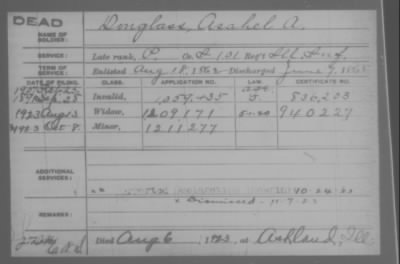 DEAD
Douglass, Asahel A.
NAME OF SOLDIER:
SERVICE: Late rank, P. Co. 131 Reg't Ill Inf.
TERM OF SERVICE: Enlisted Aug 18, 1862 Discharged June 9, 1865
DATE OF FILING. CLASS. APPLICATION NO. LAW. CERTIFICATE NO.
Invalid, 1,059,435
1923 Aug 13 Widow, 1209171 940227
Minor, 1211277
ADDITIONAL SERVICES:
x Dismissed - 11-7-23
REMARKS:
Died Aug 6, 1923, at Ashland, Ill.